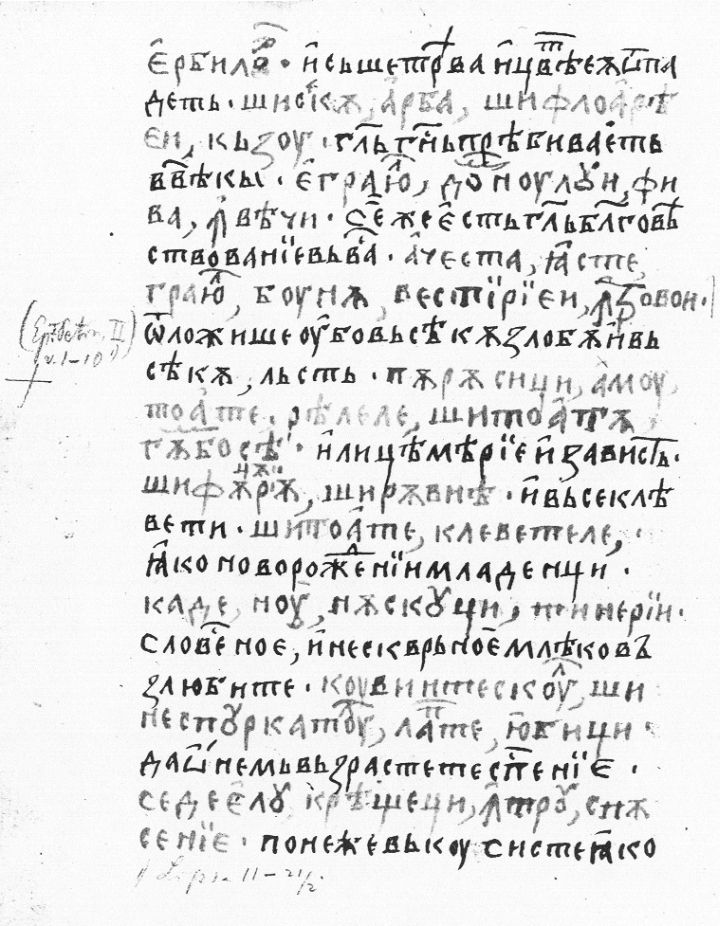 е҆рбилꙋ · и҆сьшетрꙋва и҆цвѣ́т еѧѿпа
деть · шисекѫ, а҆рба, шифлоа҆рѣ
еи, кьзоу · гл҃ьгн҃ьпрѣбиваеть
вьвѣкы · е҆граю҆л, домноулꙋи, фи
ва, ꙟвѣчи · се҆жеестьгл҃ьбл҃говѣ
ствованїевьва · ачеста, ꙗсте,
граюл, боунѫ, вестїрїеи, ꙟзвовои ·
ѿложишеоу҆бовьсѣкѫзлобѫи҆вь
сѣкѫ, льсть · пѫрѫсици, амоу,
тоате, рѣлеле, шитоатѫ,
гѫбосѣ · и҆лицѣмѣрїеи҆зависть ·
шифѫцѫрїѫ, ширѫвнѣ · и҆вьсеклѣ
вети · шитоате, клеветеле, ·
ꙗ҆коноворожⷣенїимладенци ·
каде, ноу, нѫскꙋци, тинерїи ·
словеное, и҆нескврьноемлѣковъ
злюбите · коувинтескоул, ши
неспꙋркатоул, лапте, юбици ·
даѡ҆немьвьзрастетеспс҃енїе ·
седеелꙋ, крѣщеци, ꙟтрꙋ, спѫ
сенїе · понежевькоусистеꙗко
(Epist. Petru, II
v. 1–10)
Lipsa 11 – 21/2.